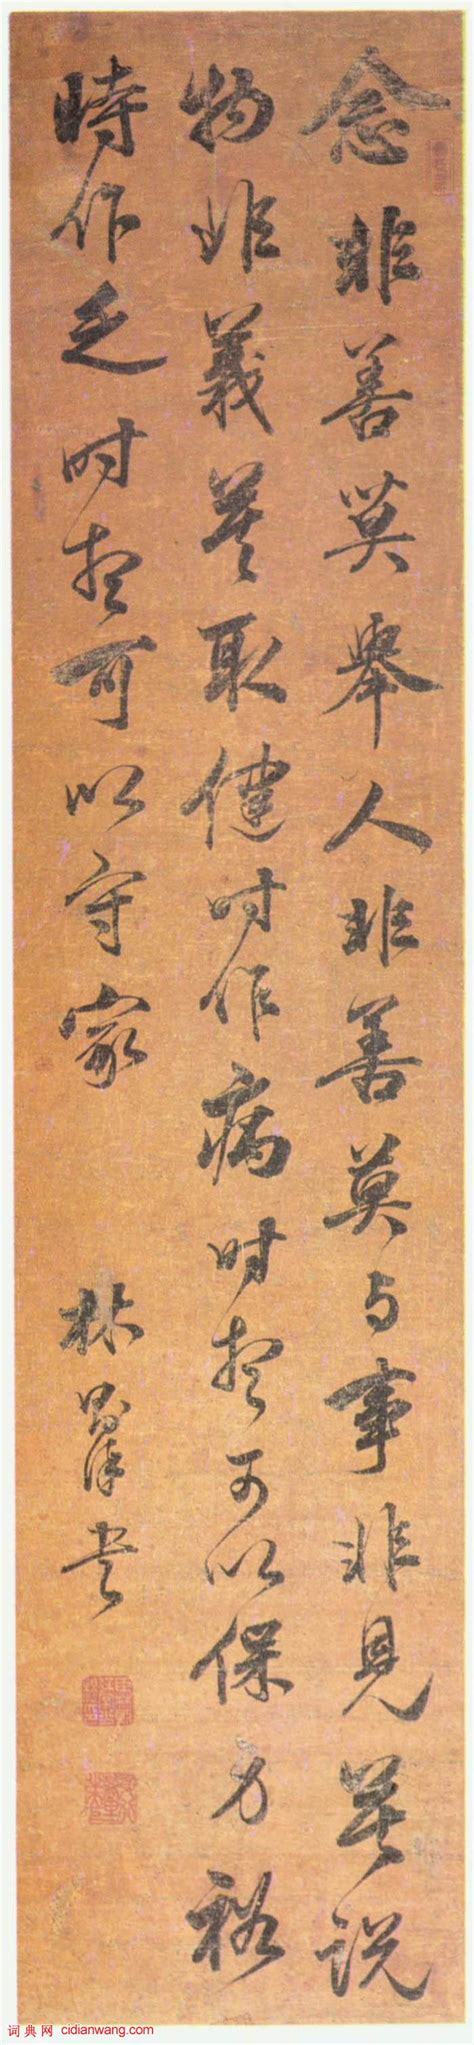 念非善莫舉人非善莫与事非見莫説
物非義莫取健时作病时想可以保身裕
時作乏时想可以守家
林书
词典网 cidianwang.com